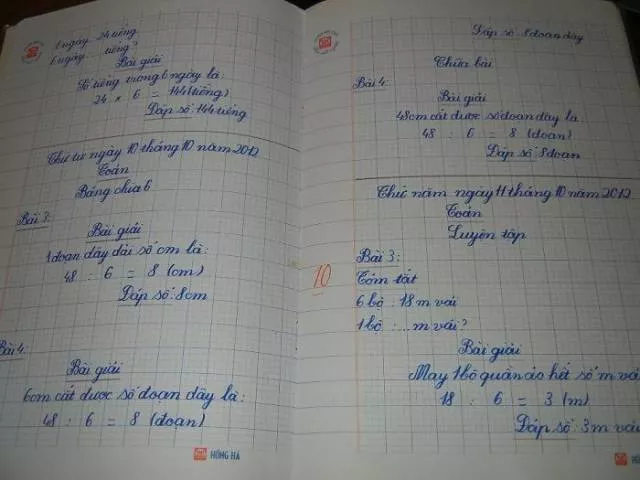 1 ngày 24 tiếng
6 ngày ... tiếng?
Bài giải
Số tiếng trong 6 ngày là:
24 x 6 = 144 (tiếng)
Đáp số: 144 tiếng
Thứ tư ngày 10 tháng 10 năm 2012
Toán
Bảng chia 6
Bài 3:
Bài giải
1 đoạn dây dài số cm là:
48 : 6 = 8 (cm)
Đáp số: 8cm
Bài 4:
Bài giải
6cm cắt được số đoạn dây là:
48 : 6 = 8 (đoạn)
HỒNG HÀ
Đáp số 8 đoạn dây
Chữa bài
Bài 4:
Bài giải
48cm cắt được số đoạn dây là
48 : 6 = 8 (đoạn)
Đáp số 8 đoạn
Thứ năm ngày 11 tháng 10 năm 2012
Toán
Luyện tập
10
Bài 3:
Tóm tắt
6 bộ : 18 m vải
1 bộ : ... m vải?
Bài giải
May 1 bộ quần áo hết số m vải
18 : 6 = 3 (m)
Đáp số: 3 m vải
HỒNG